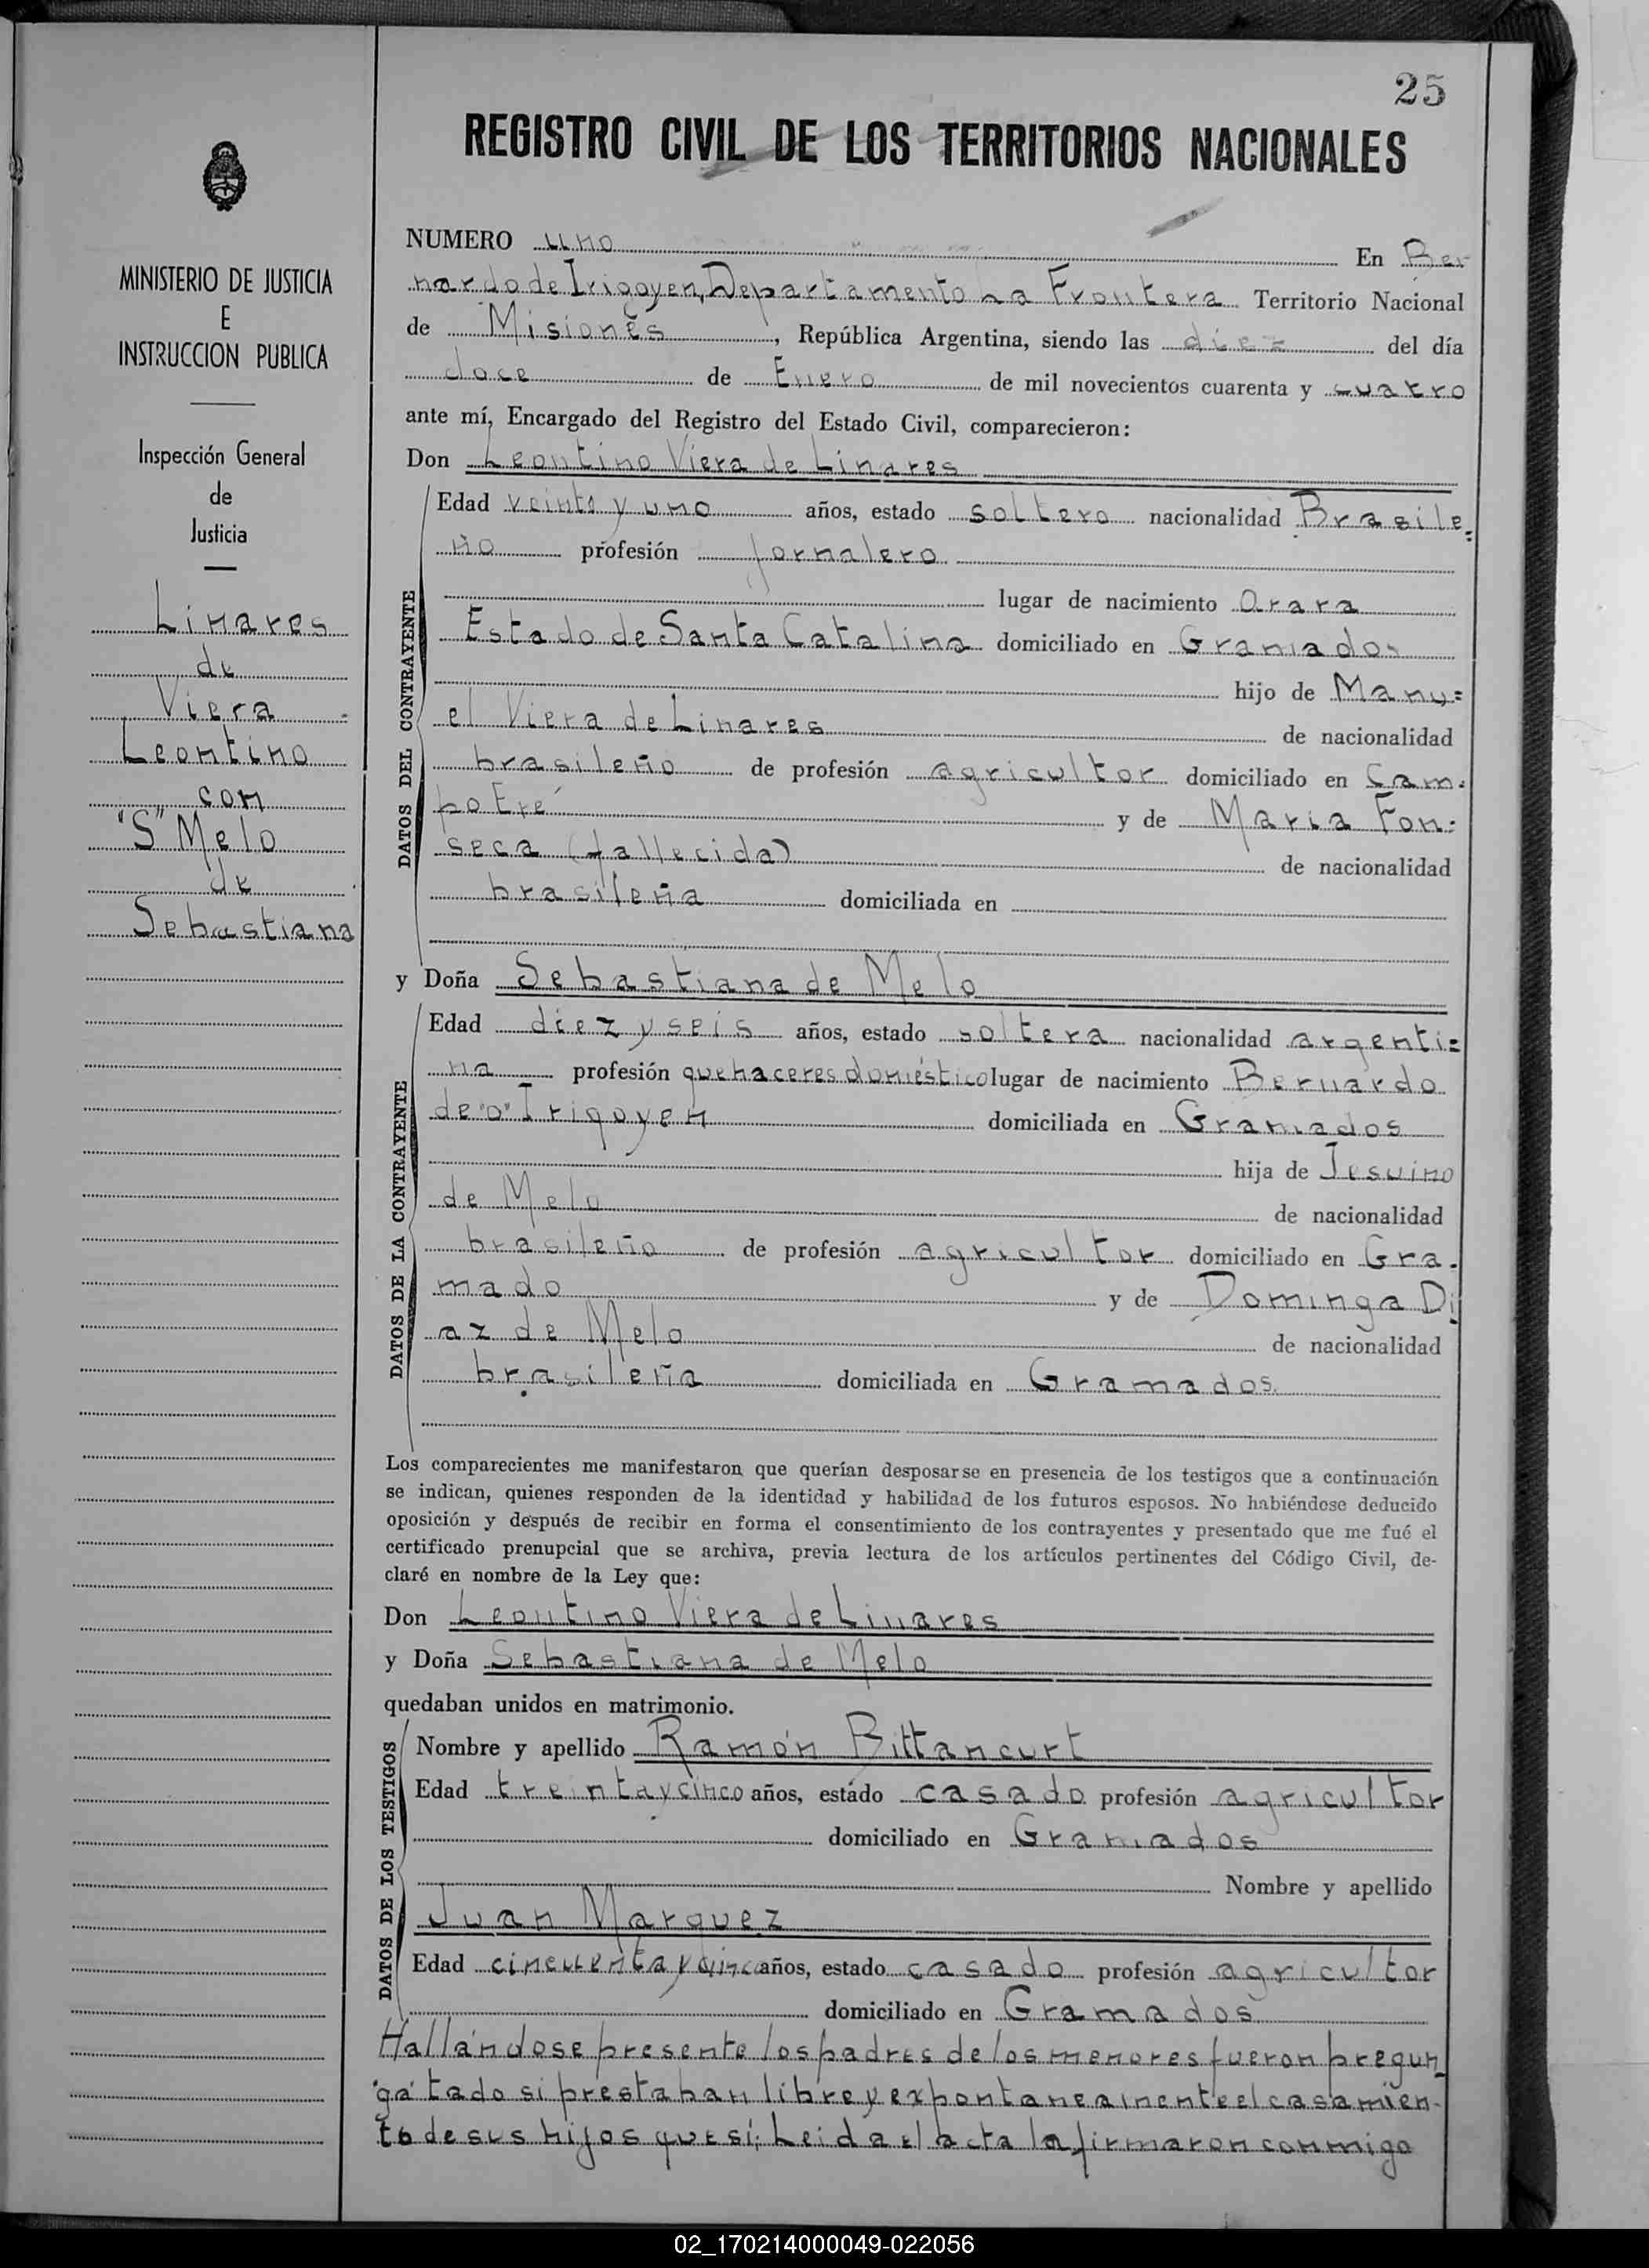 25
REGISTRO CIVIL DE LOS TERRITORIOS NACIONALES
MINISTERIO DE JUSTICIA
E
INSTRUCCION PUBLICA
Inspección General
de
Justicia
Linares
de
Viera
Leontino
con
"S" Melo
de
Sebastiana
NUMERO uno En Ber
nardo de Irigoyen, Departamento La Frontera Territorio Nacional
de Misiones, República Argentina, siendo las diez del día
doce de Enero de mil novecientos cuarenta y cuatro
ante mí, Encargado del Registro del Estado Civil, comparecieron:
Don Leontino Viera de Linares
DATOS DEL CONTRAYENTE
Edad veinte y uno años, estado soltero nacionalidad Brasile=
ño profesión jornalero
lugar de nacimiento Arara
Estado de Santa Catalina domiciliado en Gramados
hijo de Manu=
el Viera de Linares de nacionalidad
brasileño de profesión agricultor domiciliado en Cam=
po Eré y de Maria Fon=
seca (fallecida) de nacionalidad
brasileña domiciliada en
y Doña Sebastiana de Melo
DATOS DE LA CONTRAYENTE
Edad diez y seis años, estado soltera nacionalidad argenti=
na profesión quehaceres doméstico lugar de nacimiento Bernardo
de "o" Irigoyen domiciliada en Gramados
hija de Jesuino
de Melo de nacionalidad
brasileño de profesión agricultor domiciliado en Gra-
mado y de Dominga Di
az de Melo de nacionalidad
brasileña domiciliada en Gramados.
Los comparecientes me manifestaron que querían desposarse en presencia de los testigos que a continuación
se indican, quienes responden de la identidad y habilidad de los futuros esposos. No habiéndose deducido
oposición y después de recibir en forma el consentimiento de los contrayentes y presentado que me fué el
certificado prenupcial que se archiva, previa lectura de los artículos pertinentes del Código Civil, de-
claré en nombre de la Ley que:
Don Leontino Viera de Linares
y Doña Sebastiana de Melo
quedaban unidos en matrimonio.
DATOS DE LOS TESTIGOS
Nombre y apellido Ramón Bittancurt
Edad treinta y cinco años, estádo casado profesión agricultor
domiciliado en Gramados
Nombre y apellido
Juan Marquez
Edad cincuenta y cinco años, estado casado profesión agricultor
domiciliado en Gramados
Hallándose presente los padres de los menores fueron pregun_
"ga" tado si prestaban libre y expontaneamente el casamien-
to de sus hijos que si; Leida el acta la firmaron conmigo
02_170214000049-022056